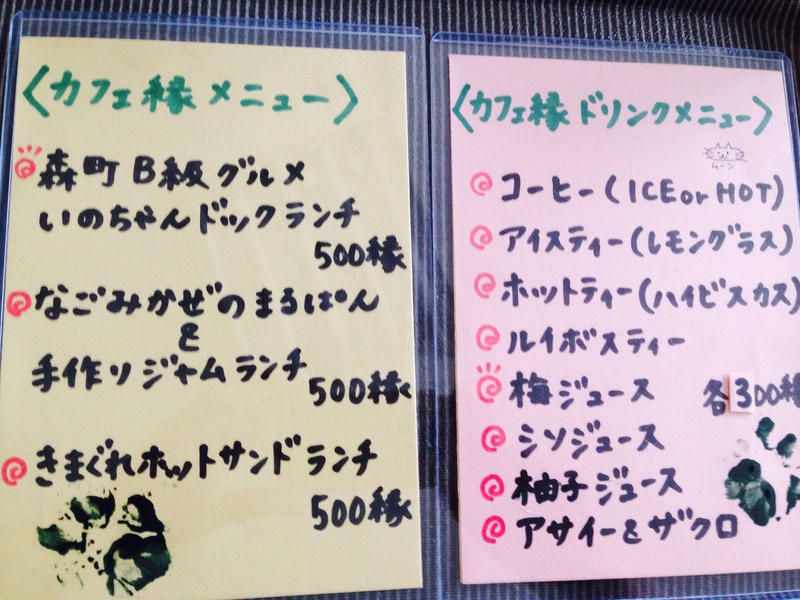 〈カフェ縁メニュー〉
森町B級グルメ
いのちゃんドックランチ
500縁
なごみかぜのまるぱん
&
手作りジャムランチ
500縁
きまぐれホットサンドランチ
500縁
〈カフェ縁ドリンクメニュー〉
ムーン
コーヒー(ICE or HOT)
アイスティー(レモングラス)
ホットティー(ハイビスカス)
ルイボスティー
梅ジュース 各300縁
シソジュース
柚子ジュース
アサイー&ザクロ